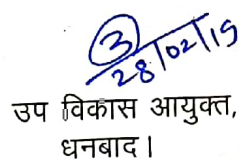 3
28/02/19
उप विकास आयुक्त,
धनबाद।